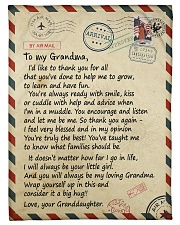 BY AIR MAIL
ARRIVAL
To my Grandma,
I'd like to thank you for all
that you've done to help me to grow,
to learn and have fun.
You're always ready with smile, kiss
or cuddle with help and advice when
I'm in a muddle. You encourage and listen
and let me be me. So thank you again -
I feel very blessed and in my opinion
You're truly the best! You've taught me
to know what families should be.
It doesn't matter how far I go in life,
I will always be your little girl.
And you will always be my loving Grandma.
Wrap yourself up in this and
consider it a big hug!!
Love, your Granddaughter.